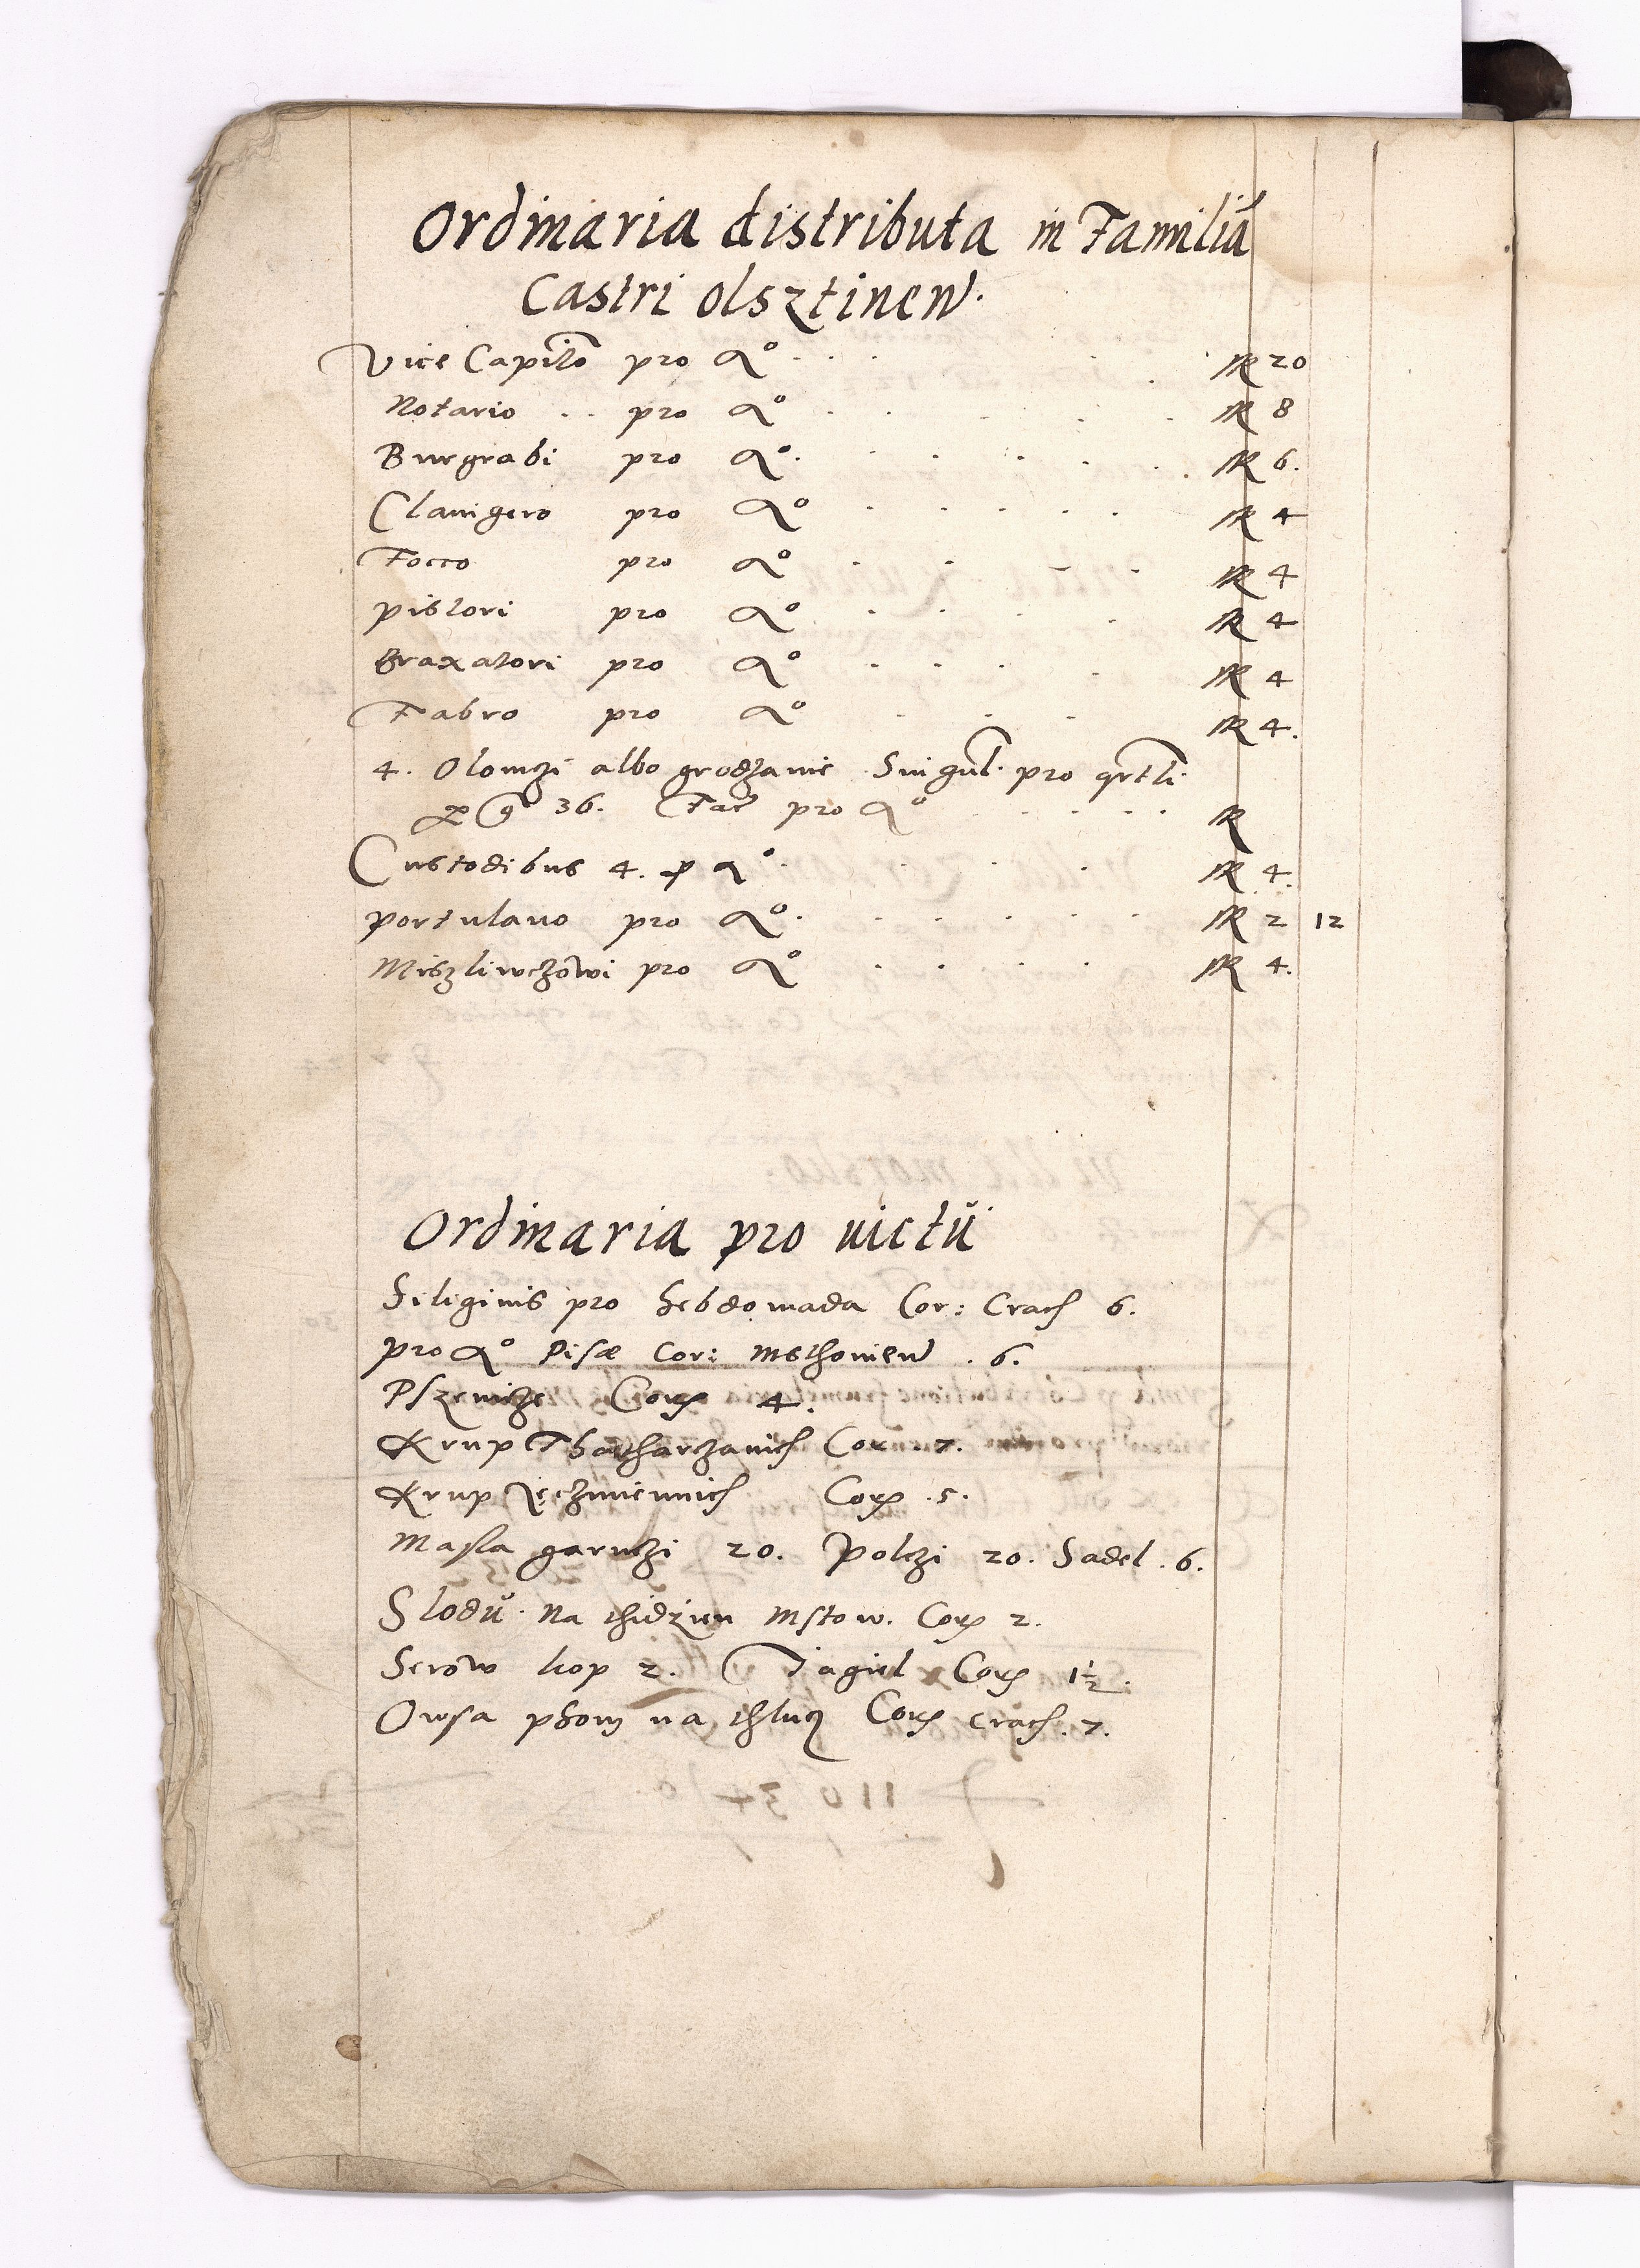 Ordinaria distributa in Familiā
Castri Olsztinen.
Vice Capito pro Ao . . . . . M 20
Notario . . pro Ao . . . . M 8
Burgrabi pro Ao . . . . . . M 6.
Clauigero pro Ao . . . . . M 4
Focco pro Ao . . . . M 4
Pistori pro Ao . . . . M 4
Braxatori pro Ao . . . . M 4
Fabro pro Ao . . . M 4.
4. Olomczi albo grodzanie Singul. pro qrtli
per g 36. Fac pro Ao . . . . M
Custodibus 4. p Ao . . . . M 4.
Portulano pro Ao . . . . . . M 2 12
Miszliwczowi pro Ao . . . . M 4.
Ordinaria pro uictŭ
Siliginis pro hebdomada Cor: Crach 6.
pro Ao Pisæ Cor: Msthouien . 6.
Pszenicze Cor 4.
Krup Thatharczanich Cor . 7.
Krup Jęczmiennich Cor . 5.
Masla garnczi 20. Polczi 20. Sadel . 6.
Slodŭ na thidzien Mstow. Cor 2.
Serow kop 2. Jagiel Cor 1½.
Owsa Cor Crach . 7.